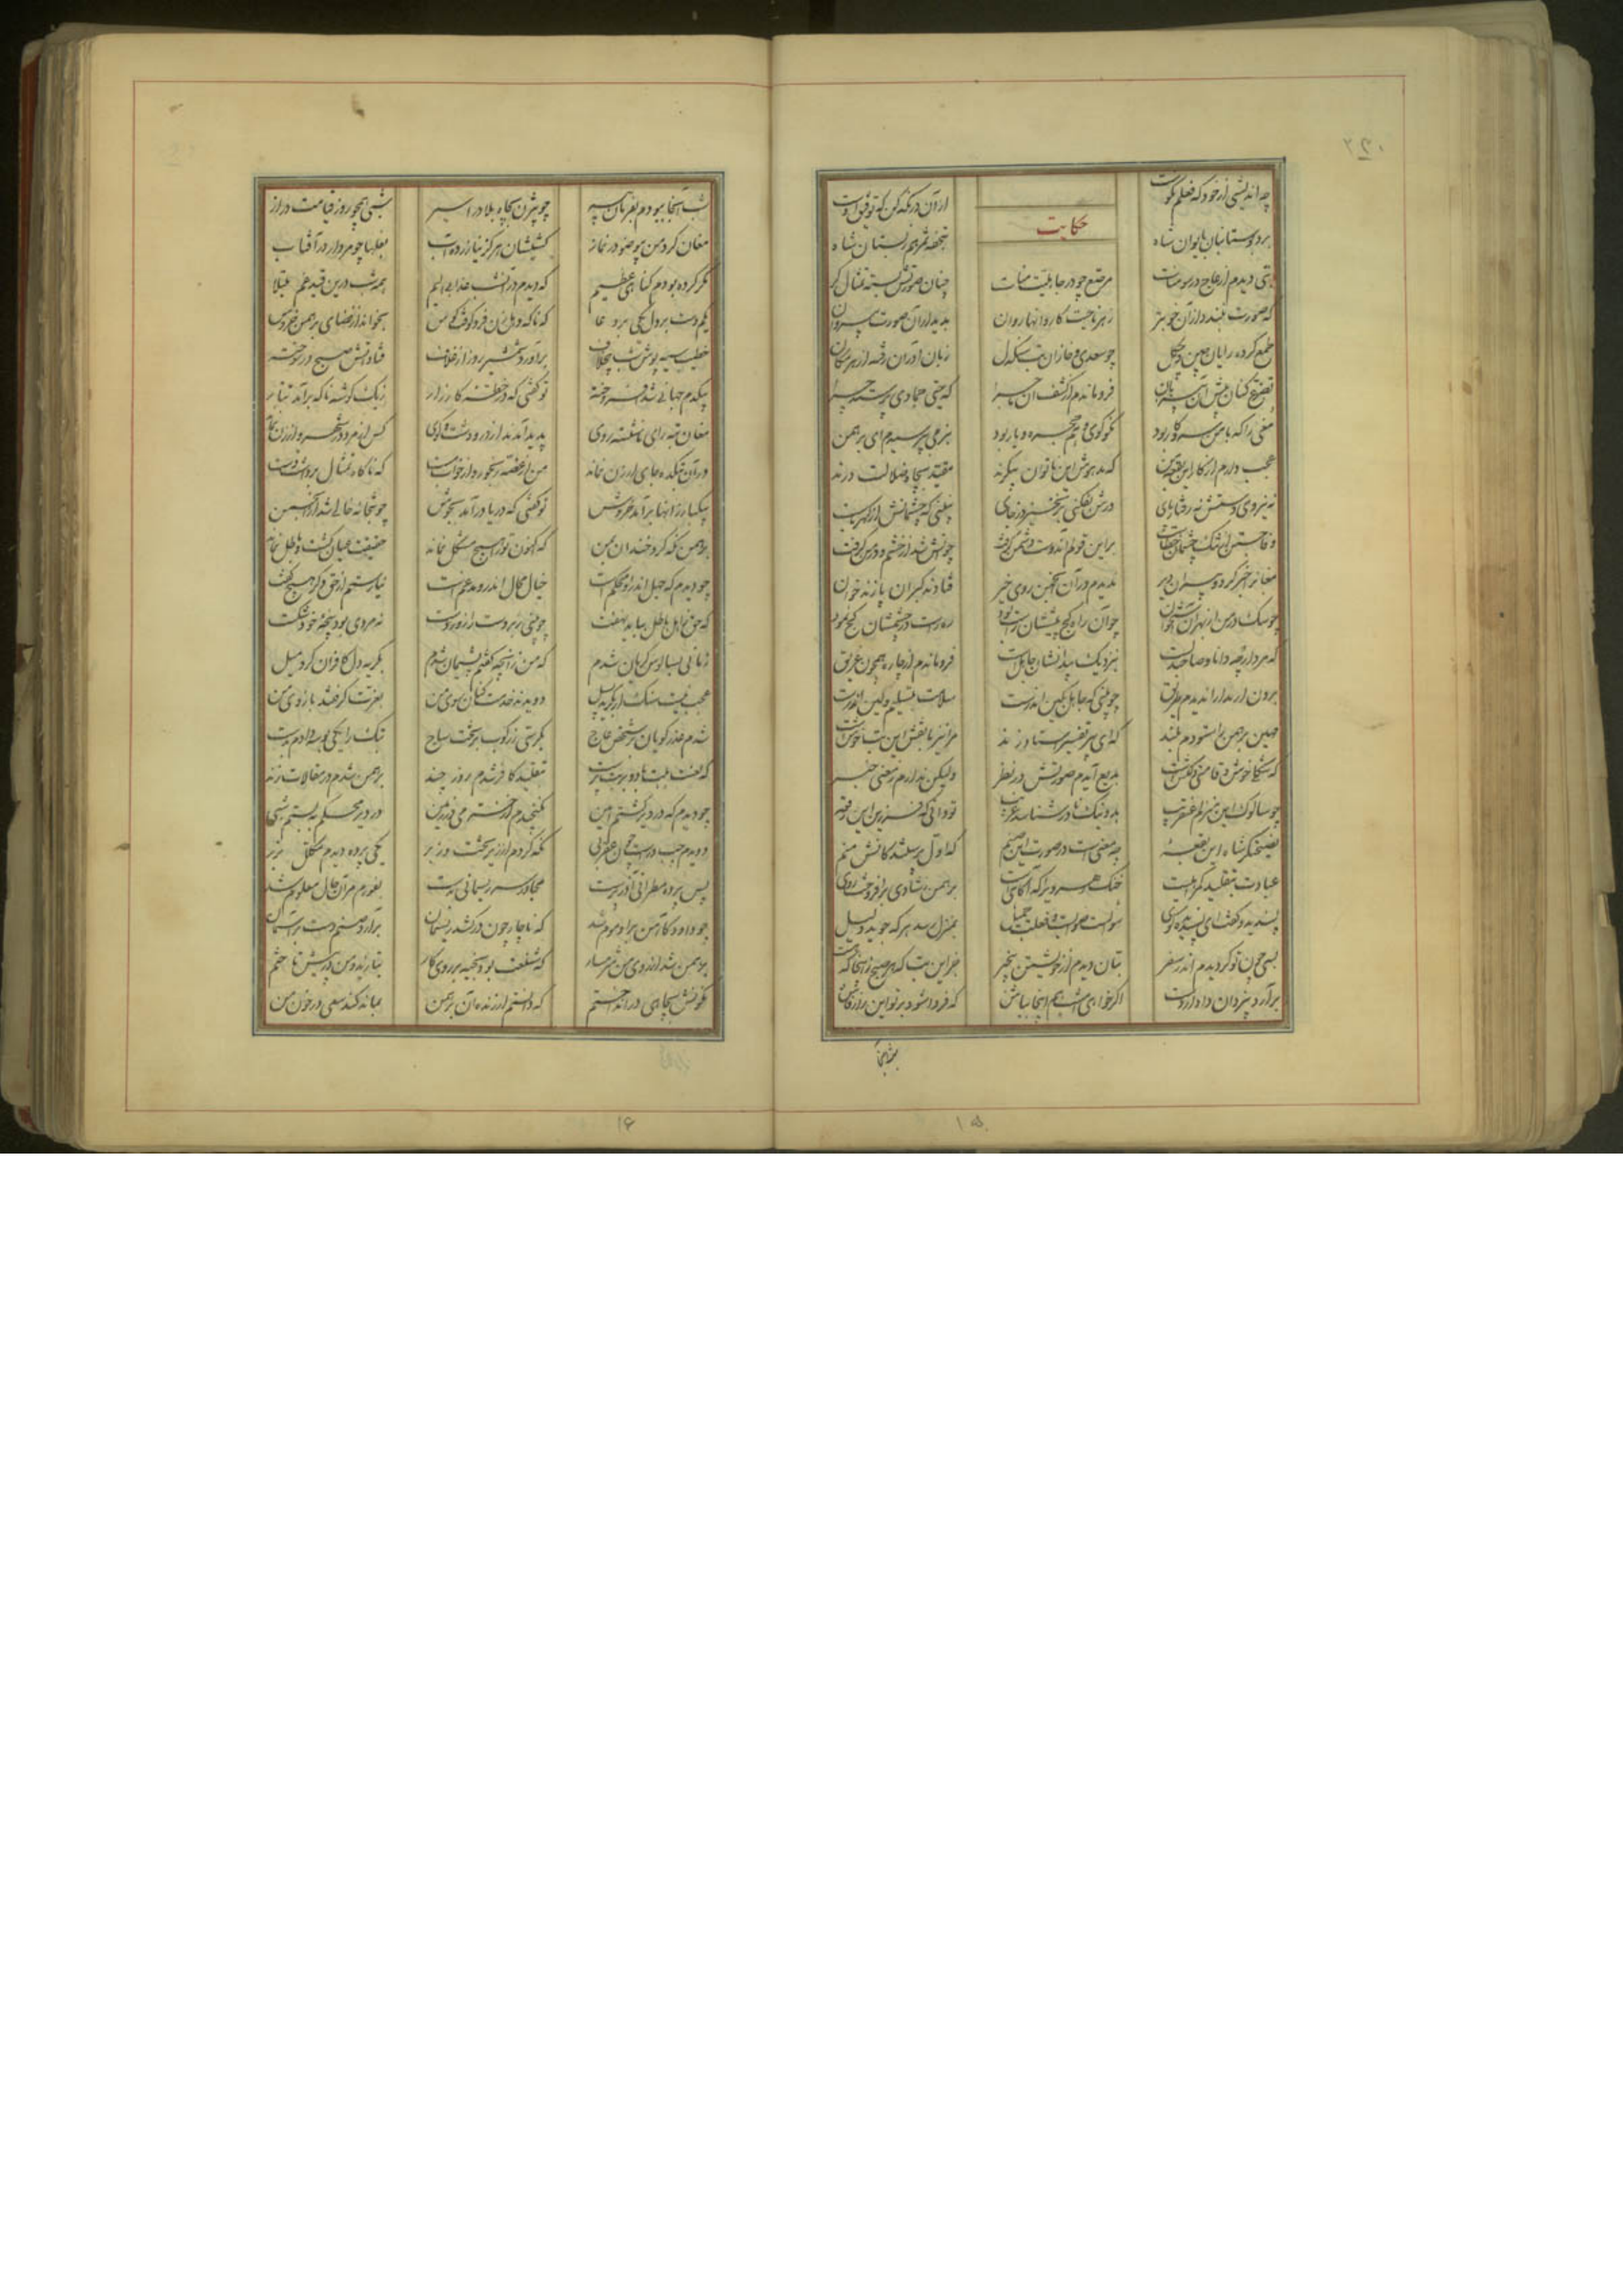 ۲۴۰
چه اندیشی از خود که فعلم نکوست از آن در نگه کن که توفیق اوست
حکایت
برد بوستانبان بایوان شاه بتحفه ثمر هم ز بستان شاه
بتی دیدم از عاج در سومنات مرصع چو در جاهلیت منات چنان صورتش بسته تمثال گر
که صورت نبندد از آن خوبتر ز هر ناحیت کاروانها روان بدیدار آن صورت بی روان
طمع کرده رایان چین و چگل چو سعدی وفا زان بت سنگدل زبان آوران رفته از هر مکان
تضرع کنان پیش آن بی زبان فرو ماندم از کشف آن ماجرا که حیی جمادی پرستد چرا
مغی را که با من سر و کار بود نکوگوی و هم حجره و یار بود بنرمی بپرسیدم ای برهمن
عجب دارم از کار این بقعه من که مدهوش این ناتوان پیکرند مقید بچاه ضلالت درند
نه نیروی دستش نه رفتار پای ورش بفکنی برنخیزد ز جای نبینی که چشمانش از کهرباست
وفا جستن از سنگ چشمان خطاست براین قولم آن دوست دشمن گرفت چو آتش شد از خشم و در من گرفت
مغانرا خبر کرد و پیران دیر ندیدم در آن انجمن روی خیر فتادند گبران پازند خوان
چو سگ در من از بهر آن استخوان چو آن راه کج پیششان راست بود ره راست در چشمشان کج نمود
که مرد ارچه دانا و صاحبدلست بنزدیک بیدانشان جاهلست فرو ماندم از چاره همچون غریق
برون از مدارا ندیدم طریق چو بینی که جاهل بکین اندرست سلامت بتسلیم و لین اندرست
مهین برهمن را ستودم بلند که ای پیر تفسیر استا و زند مرا نیز با نقش این بت خوشست
که شکلی خوش و قامتی دلکش است بدیع آیدم صورتش در نظر ولیکن ندارم ز معنی خبر
چو سالوک این منزلم عنقریب بد از نیک نادر شناسد غریب تو دانی که فرزین این رقعه
نصیحتگر شاه این بقعه چه معنی است در صورت این صنم که اول پرستندگانش منم
عبادت بتقلید گمراهیست خنک رهرویرا که آگاهیست برهمن ز شادی برافروخت روی
پسندید و گفت ای پسندیده روی سوالت صوابست و فعلت جمیل بمنزل رسد هر که جوید دلیل
بسی چون تو گردیدم اندر سفر بتان دیدم از خویشتن بیخبر جز این بت که هر صبح از اینجا که هست
برآرد بیزدان دادار دست اگر خواهی امشب هم اینجا بباش که فردا شود بر تو این راز فاش
شب آنجا
۱۵
شب آنجا ببودم بفرمان پیر چو بیژن بچاه بلا در اسیر شبی همچو روز قیامت دراز
مغان گرد من بی وضو در نماز کشیشان هرگز نیازرده آب بغلها چو مردار در آفتاب
مگر کرده بودم گناهی عظیم که دیدم در آنشب عذابی الیم همه شب درین قید غم مبتلا
یکم دست بر دل یکی بر دعا که ناگه دهل زن فرو کوفت کوس بخواند از فضای برهمن خروس
خطیب سیه پوش شب بیخلاف برآورد شمشیر روز از غلاف فتاد آتش صبح در سوخته
بیکدم جهانی شد افروخته تو گفتی که در خطه زنگبار ز یک گوشه ناگه برآمد تتار
مغان تبه رای ناشسته روی پدید آمدند از در و دشت و کوی کس از مرد در شهر و از زن نماند
در آن بتکده جای ارزن نماند من از غصه رنجور و از خواب مست که ناگاه تمثال برداشت دست
بیکبار از آنها برآمد خروش تو گفتی که دریا درآمد بجوش چو بتخانه خالی شد از انجمن
برهمن نگه کرد خندان بمن که اکنون ترا هیچ مشکل نماند حقیقت عیان گشت و باطل نماند
چو دیدم که جهل اندرو محکم است خیال محال اندرو مدغم است نیارستم از حق دگر هیچ گفت
که حق ز اهل باطل بباید نهفت چو بینی زبردست را زور دست نه مردی بود پنجه خود شکست
زمانی بسالوس گریان شدم که من زانچه گفتم پشیمان شدم بگریه دل کافران کرد میل
عجب نیست سنگ ار بگردد بسیل دویدند خدمت کنان سوی من بعزت گرفتند بازوی من
شدم عذرگویان بر شخص عاج بکرسی زر کوب بر تخت ساج بتک را یکی بوسه دادم بدست
که لعنت برو باد و بر بت پرست بتقلید کافر شدم روز چند برهمن شدم در مقالات زند
چو دیدم که در دیر گشتم امین نگنجیدم از خرمی در زمین در دیر محکم ببستم شبی
دویدم چپ و راست چون عقربی نگه کردم از زیر تخت و زبر یکی پرده دیدم مکلل بزر
پس پرده مطرانی آذرپرست مجاور سر ریسمانی بدست بفورم در آن حال معلوم شد
چو داود کآهن برو موم شد که ناچار چون درکشد ریسمان برآرد صنم دست بر آسمان
برهمن شد از روی من شرمسار که شنعت بود بخیه بر روی کار بتازید و من در پیش تاختم
نگونش بچاهی در انداختم که دانستم ار زنده آن برهمن بماند کند سعی در خون من
۱۶